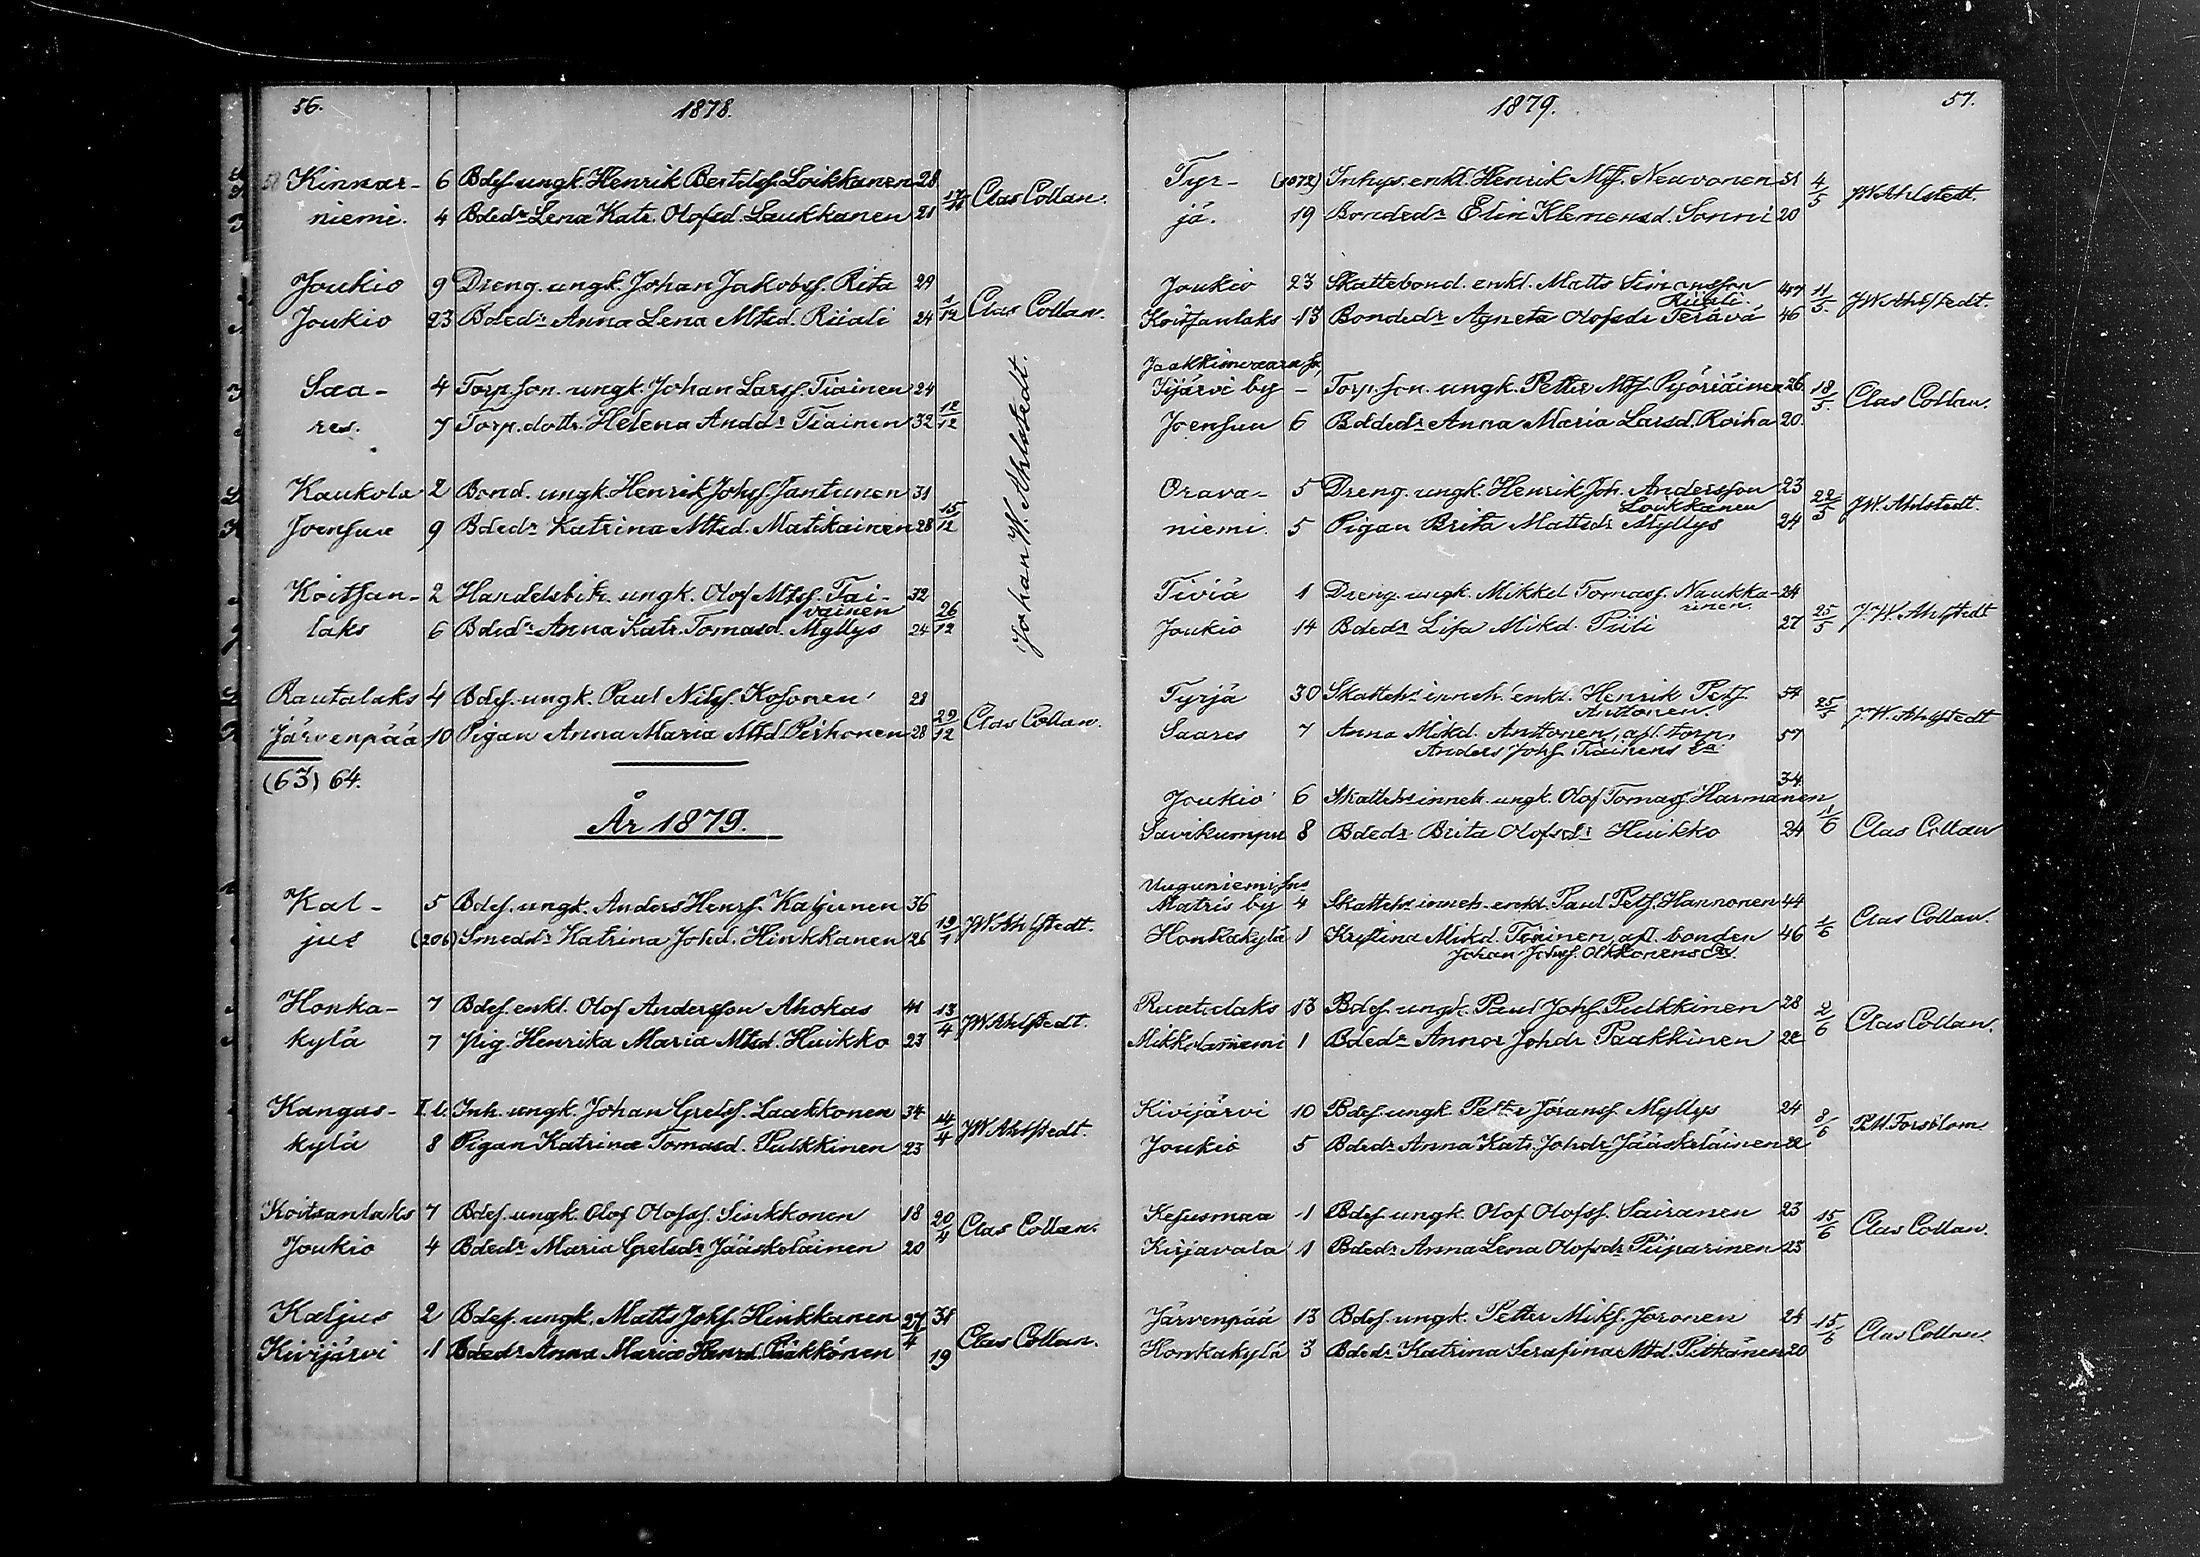 56. 1878.
Kinnar- 6 Bdes. ungk. Henrik Bertilss. Loikkanen 28 17/11 Clas Collan.
niemi. 4 Bdedr Lena Katr. Olofsd. Laukkanen 21
Joukio 9 Dreng. ungk. Johan Jakobss. Rita 29 1/12 Clas Collan.
Joukio 23 Bdedr Anna Lena Mtsd. Riiali 24
Saa- 4 Torp.son. ungk. Johan Larss. Tiainen 24 12/12 Johan W. Ahlstedt.
res. 7 Torp.dottr. Helena Anddr Tiainen 32
Kaukola 2 Bond. ungk. Henrik Johss. Jantunen 31 15/12
Joensuu 9 Bdedr Katrina Mtsd. Matikainen 28
Koitsan- 2 Handelsbitr. ungk. Olof Mtss. Tai- 32 26/12
vainen
laks 6 Bdedr Anna Katr. Tomasd. Myllys 24
Rautalaks 4 Bdes. ungk. Paul Nilss. Kosonen 28 29/12 Clas Collan.
Järvenpää 10 Pigan Anna Maria Mtd. Pirhonen 28
(63) 64.
År 1879.
Kal- 5 Bdes. ungk. Anders Henrs. Kaljunen 36 19/1 JW Ahlstedt.
jus (206) Smeddr Katrina Johd. Hinkkanen 26
Honka- 7 Bdes. enkl. Olof Andersson Ahokas 41 13/4 JW Ahlstedt.
kylä 7 Pig. Henrika Maria Mtsd. Huikko 23
Kangas- I.l. Inh. ungk. Johan Grelss. Laakkonen 34 14/4 JW Ahlstedt.
kylä 8 Pigan Katrina Tomasd. Pulkkinen 23
Koitsanlaks 7 Bdes. ungk. Olof Olofss. Sinkkonen 18 20/4 Clas Collan.
Joukio 4 Bdedr Maria Grelsdr Jääskeläinen 20
Kaljus 2 Bdes. ungk. Matts Johs. Hinkkanen 27/4 31 Clas Collan.
Kivijärvi 1 Bdedr Anna Maria Henrd. Pääkkönen 19
1879. 57.
Tyr- (1072) Inhys. enkl. Henrik Mtss. Neuvonen 51 4/5 JW Ahlstedt.
jä. 19 Bondedr Elin Klemensd. Sonni 20
Joukio 23 Skattebond. enkl. Matts Simonsson 47 11/5 JW Ahlstedt.
Riiali.
Koitsanlaks 13 Bondedr Agneta Olofsdr Terävä 46
Jaakkimvaara sn,
Iijärvi by - Torp.son. ungk. Petter Mtss. Pyöriäinen 26 18/5 Clas Collan.
Joensuu 6 Bdedr Anna Maria Larsd. Roiha 20.
Orava- 5 Dreng. ungk. Henrik Joh. Andersson 23 22/5 JW. Ahlstedt.
Loikkanen
niemi. 5 Pigan Brita Mattsdr Myllys 24
Tiviä 1 Dreng. ungk. Mikkel Tomass. Naukka- 24 25/5 J.W. Ahlstedt
rinen.
Joukio 14 Bdedr Lisa Mikd. Piili 27
Tyrjä 30 Skattehs inneh. enkl. Henrik Petss. 54 25/5 J.W. Ahlstedt
Anttonen.
Saares 7 Anna Mikd. Anttonen, afl. torp. 57
Anders Johs. Tiainens Ea
Joukio 6 Skattehs inneh. ungk. Olof Tomass. Harmanen 34 1/6 Clas Collan
Savikumpu 8 Bdedr Brita Olofsdr Huikko 24
Uuguniemi sns
Matris by 4 Skattehs inneh. enkl. Paul Petss. Hannonen 44 1/6 Clas Collan.
Honkakylä 1 Kristina Mikd. Toninen, afl. bonden 46
Johan Johss. Olkkonens Ea
Rautalaks 13 Bdes. ungk. Paul Johs. Pulkkinen 28 2/6 Clas Collan.
Mikkolanniemi 1 Bdedr Anna Johdr Paakkinen 22
Kivijärvi 10 Bdes. ungk. Petter Jöranss. Myllys 24 8/6 P.W. Forsblom
Joukio 5 Bdedr Anna Katr. Johdr Jääskeläinen 22
Kesusmaa 1 Bdes. ungk. Olof Olofss. Sairanen 23 15/6 Clas Collan.
Kirjavala 1 Bdedr Anna Lena Olofsdr Piiparinen 23
Järvenpää 13 Bdes. ungk. Petter Miks. Joronen 24 15/6 Clas Collan.
Honkakylä 3 Bdedr Katrina Serafina Mtd. Pitkänen 20